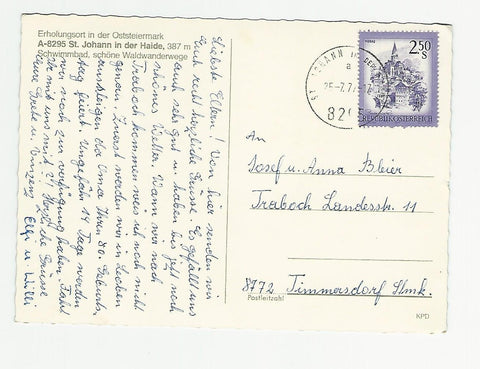 Erholungsort in der Oststeiermark
A-8295 St. Johann in der Haide, 387 m
Schwimmbad, schöne Waldwanderwege
Liebste Eltern! Von hier senden wir
Euch recht herzliche Grüsse. Es gefällt uns
auch sehr gut u. haben bis jetzt noch
schönes Wetter. Wann wir nach
Traboch kommen weis ich noch nicht
genau. Zuerst werden wir in Leoben
aussteigen da Oma Ihren 80. Geburts-
tag feiert. Ungefähr 14 Tage werden
wir noch zur verfügung haben. Fahrt
Ihr mit uns mit?! Herzliche Grüsse
Grete u. Vinzenz Elfi u Willi
2.50
S
REPUBLIK ÖSTERREICH
ST. JOHANN
a
25.-7.7
829
An
Josef u. Anna Bleier
Traboch Landesstr. 11
8772 Timmersdorf Stmk.
Postleitzahl
KPD